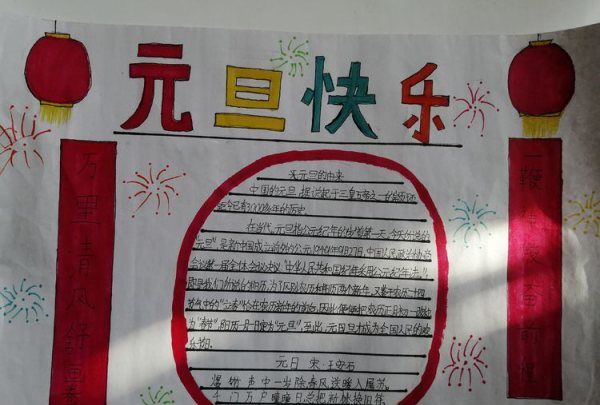 元旦快乐
万里清风好画春
一鞭残夜奋前程
关元旦的由来
中国的元旦,据说起于三皇五帝之一的颛顼
距今已有3000多年的历史
在当代,元旦指公元纪年的岁首第一天,今天所说的
元旦"是新中国成立前夕的公元1949年9月27日,中国人民政治协商
会议第一届全体会议决议"中华人民共和国纪年采用公元纪年法"
即是我们所说的阳历,为了区别农历和阳历两个新年,又鉴于农历二十四
节气中的"立春"恰在农历新年的前后,因此便把农历正月初一改称
为"春节",阳历一月一日定为"元旦",至此,元旦才成为全国人民的欢
乐节
元日 宋·王安石
爆竹声中一岁除春风送暖入屠苏
千门万户曈曈日总把新桃换旧符